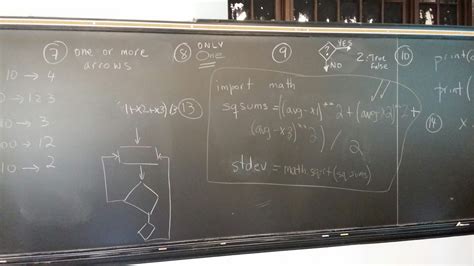 7 one or more
arrows
8 ONLY
One
9
? YES
NO
2: True
False
10
print(
print(
14
x
10 → 4
→ 123
→
00 → 2
1+x2+x3)/3
13
import math
sqsums = ((avg-x1)**2 + (avg-x2)**2 +
(avg-x3)**2) / 2
stdev = math.sqrt(sqsums)